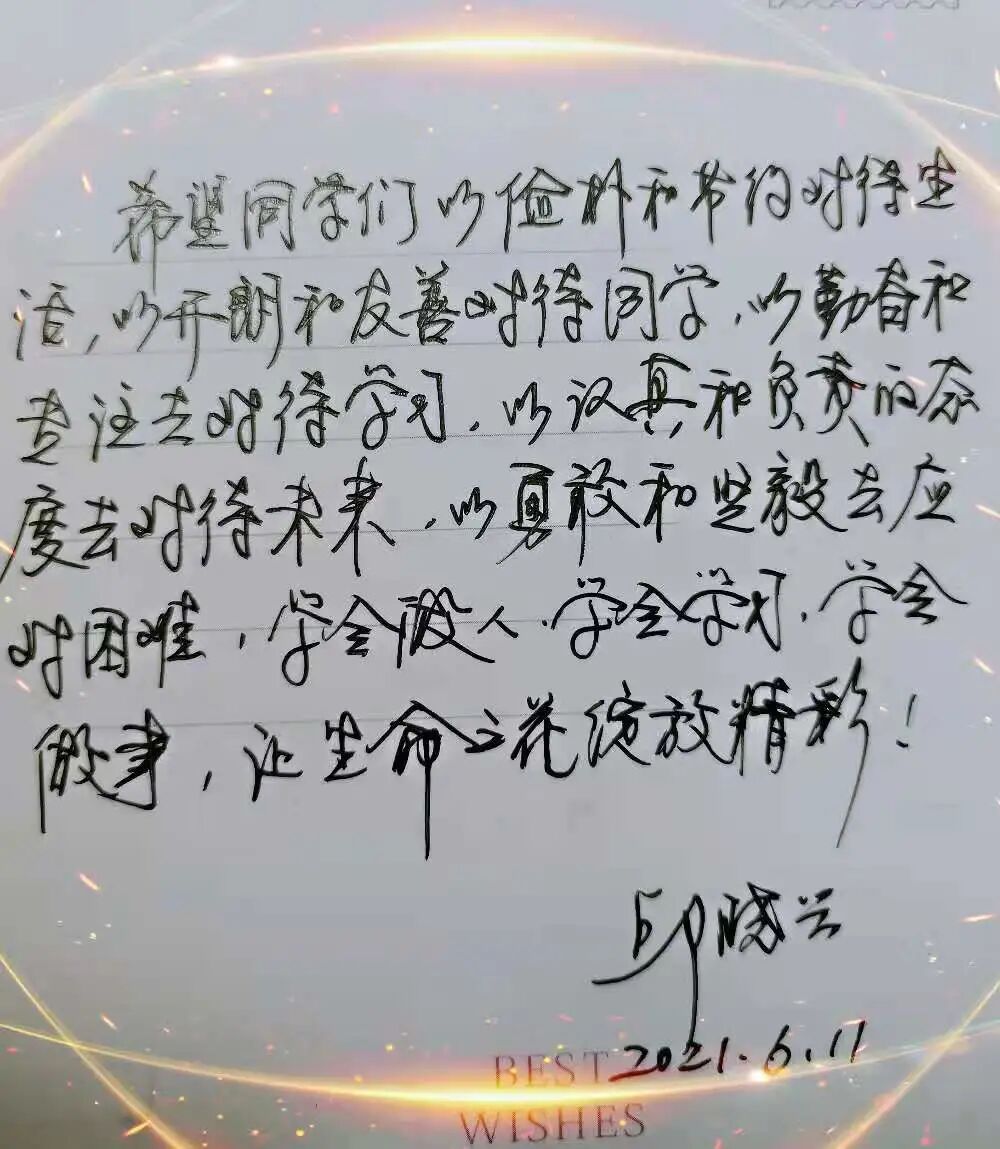 希望同学们以俭朴和节约对待生
活,以开朗和友善对待同学,以勤奋和
专注去对待学习,以认真和负责的态
度去对待未来,以勇敢和坚毅去应
对困难,学会做人,学会学习,学会
做事,让生命之花绽放精彩!
邱晓兰
2021.6.11
BEST
WISHES